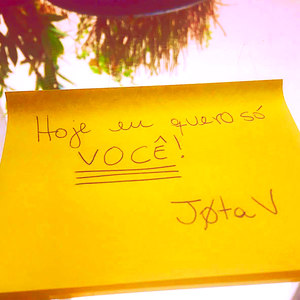 Hoje eu quero só
VOCÊ!
JØta V